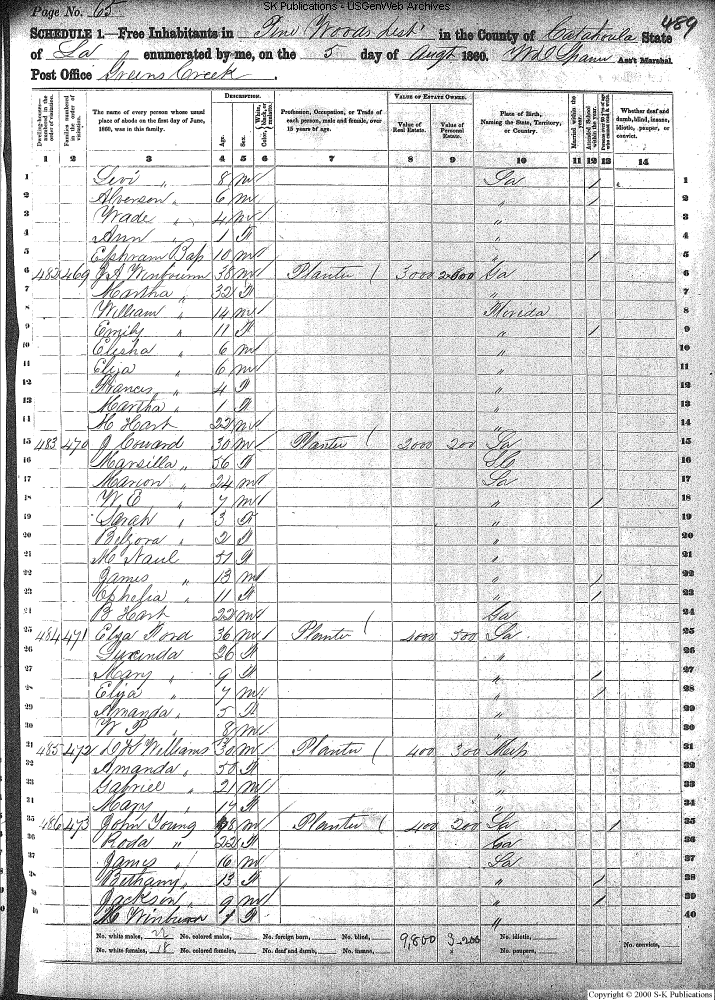 SK Publications - USGenWeb Archives
Page No. 65
489
SCHEDULE 1.—Free Inhabitants in Piny Woods Dist in the County of Catahoula State
of La enumerated by me, on the 5 day of Augt 1860. Ass't Marshal.
Post Office Greens Creek.
DESCRIPTION. VALUE OF ESTATE OWNED.
Dwelling-houses— numbered in the order of visitation. Families numbered in the order of visitation. The name of every person whose usual place of abode on the first day of June, 1860, was in this family. Age. Sex. Color, White, black, or mulatto. Profession, Occupation, or Trade of each person, male and female, over 15 years of age. Value of Real Estate. Value of Personal Estate. Place of Birth, Naming the State, Territory, or Country. Married within the year. Attended School within the year. Whether deaf and dumb, blind, insane, idiotic, pauper, or convict.
1 2 3 4 5 6 7 8 9 10 11 12 13 14
1 Levi " 8 m La / 1
2 Alverson " 6 m " / 2
3 Wade " 4 m " 3
4 Ann " 1 F " 4
5 Ephram Bap 10 m " / 5
6 482 469 J A Winbourn 38 m Planter 3000 2000 Ga 6
7 Martha " 32 F " 7
8 William " 14 m Florida 8
9 Emily " 11 F " / 9
10 Elisha " 6 m " 10
11 Eliza " 6 m " 11
12 Frances " 4 F " 12
13 Martha " 1 F " 13
14 M Hart 22 m " 14
15 483 470 J Coward 30 m Planter 2000 200 La 15
16 Marsilla " 56 F 16
17 Marion " 24 m La 17
18 W E " 7 m " / 18
19 Sarah " 3 F " 19
20 Belzora " 2 F " 20
21 M Naul 51 F " 21
22 James " 13 m " / 22
23 Ophelia " 11 F " / 23
24 B Hart 22 m Ga 24
25 484 471 Elza Ford 36 m Planter 4000 500 La 25
26 Lucinda 26 F " 26
27 Mary " 9 F " / 27
28 Eliza " 7 m " / 28
29 Amanda " 5 F " 29
30 W P " 8 m " 30
31 485 472 Williams 30 m Planter 400 300 Misp 31
32 Amanda " 50 F " 32
33 Gabriel " 21 m " 33
34 Mary " 17 F " 34
35 486 473 John Young 68 m Planter 400 200 La / 35
36 Roda " 22 F Ga 36
37 James " 16 m La 37
38 Bethany " 13 F " / 38
39 Jackson " 9 m " / 39
40 Winburn 1 F " 40
No. white males, 22 No. colored males, No. foreign born, No. blind, 9,800 3-200 No. idiotic,
No. white females, 18 No. colored females, No. deaf and dumb, No. insane, No. paupers, No. convicts,
Copyright © 2000 S-K Publications